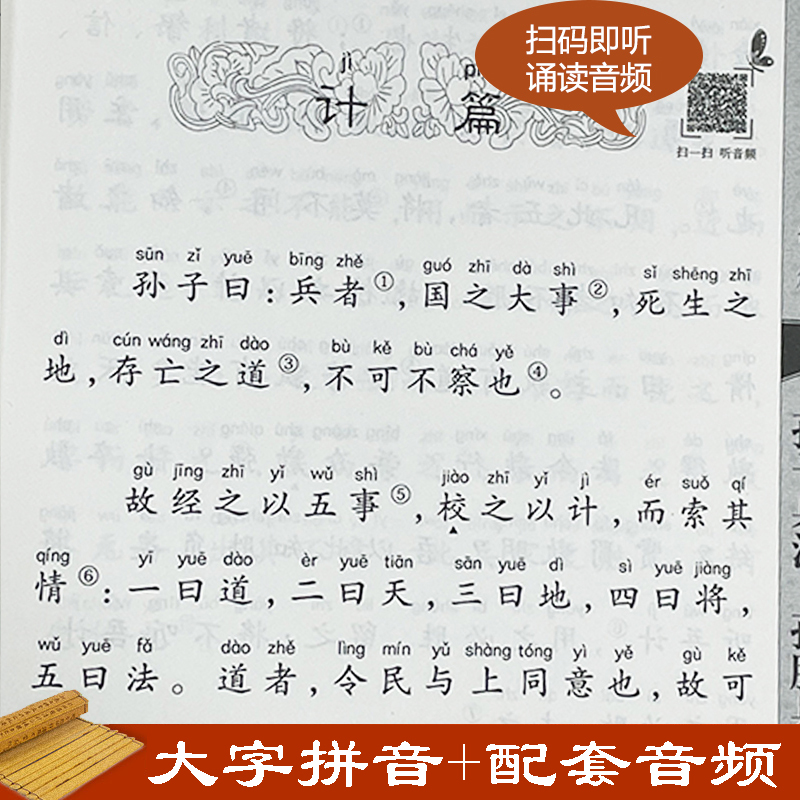 扫码即听
诵读音频
jì piān
计 篇
扫一扫 听音频
sūn zǐ yuē bīng zhě guó zhī dà shì sǐ shēng zhī
孙子曰:兵者①,国之大事②,死生之
dì cún wáng zhī dào bù kě bù chá yě
地,存亡之道③,不可不察也④。
gù jīng zhī yǐ wǔ shì jiào zhī yǐ jì ér suǒ qí
故经之以五事⑤,校之以计,而索其
qíng yī yuē dào èr yuē tiān sān yuē dì sì yuē jiàng
情⑥:一曰道,二曰天,三曰地,四曰将,
wǔ yuē fǎ dào zhě lìng mín yǔ shàng tóng yì yě gù kě
五曰法。道者,令民与上同意也,故可
大字拼音+配套音频